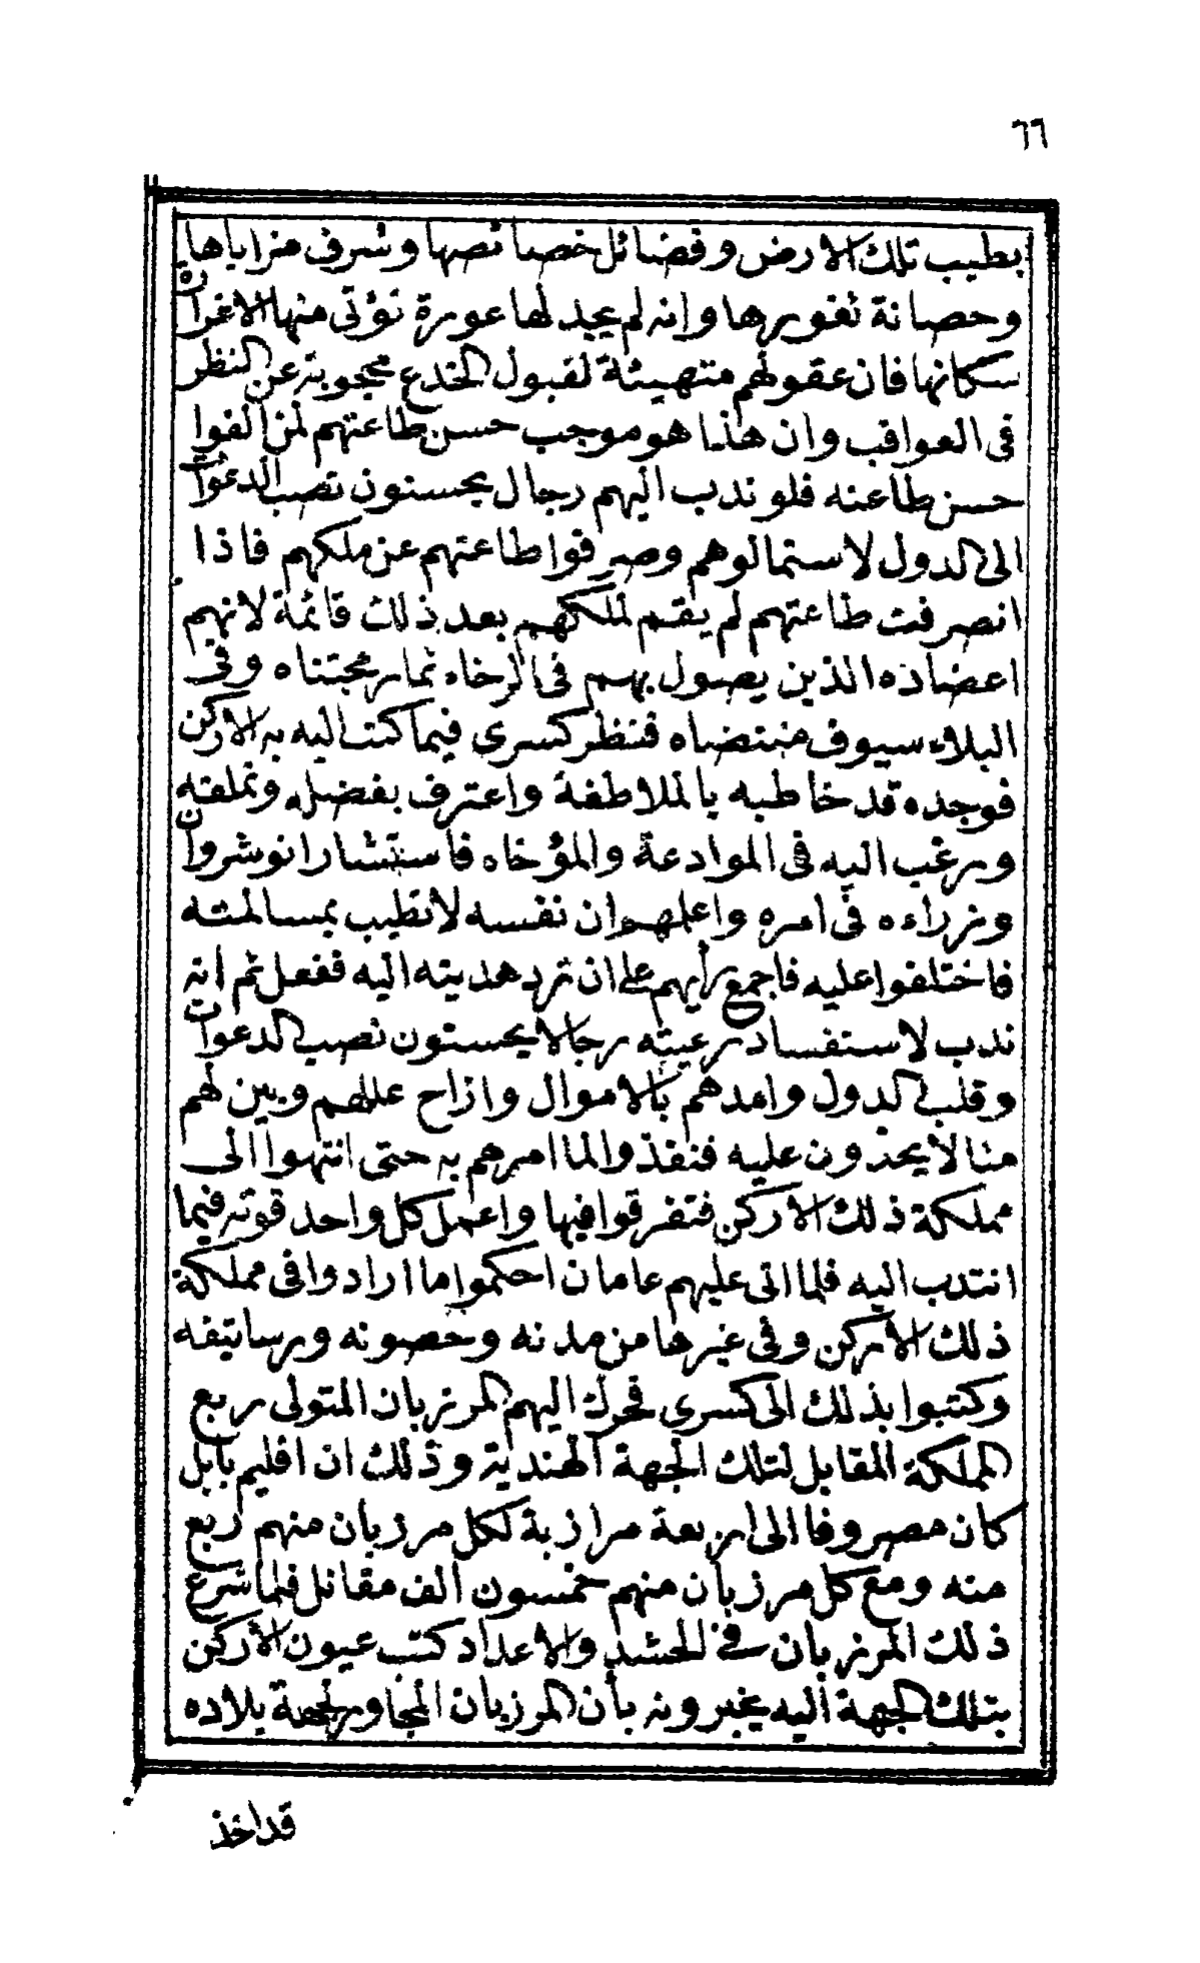 ٦٦
بطيب تلك الارض وفضائل خصائصها وشرف مزاياها
وحصانة ثغورها وانه لم يجد لها عورة تؤتى منها الاغرارة
سكانها فان عقولهم متهيئة لقبول الخدع محجوبة عن النظر
فى العواقب وان هذا هو موجب حسن طاعتهم لمن الفوا
حسن طاعته فلو ندب اليهم رجال يحسنون نصب الدعوات
الى الدول لاستمالوهم وصرفوا طاعتهم عن ملكهم فاذا
انصرفت طاعتهم لم يقم لملكهم بعد ذلك قائمة لانهم
اعضاده الذين يصول بهم فى الرخاء ثمار مجتناه وفى
البلاء سيوف منتضاه فنظر كسرى فيما كتب اليه به الاركن
فوجده قد خاطبه بالملاطفة واعترف بفضله وتملقه
ورغب اليه فى الموادعة والمؤخاه فاستشار انوشروان
وزراءه فى امره واعلمهم ان نفسه لا تطيب بمسالمته
فاختلفوا عليه فاجمع رأيهم على ان ترد هديته اليه ففعل ثم انه
ندب لاستفساد رعيته رجالا يحسنون نصب الدعوات
وقلب الدول وامدهم بالاموال وازاح عللهم وبين لهم
مثالا يحذون عليه فنفذوا لما امرهم به حتى انتهوا الى
مملكة ذلك الاركن فتفرقوا فيها واعمل كل واحد قوته فيما
انتدب اليه فلما اتى عليهم عامان احكموا ما ارادوا فى مملكة
ذلك الاركن وفى غيرها من مدنه وحصونه ورساتيقه
وكتبوا بذلك الى كسرى فحرك اليهم المرزبان المتولى ربع
المملكة المقابل لتلك الجهة الهندية وذلك ان اقليم بابل
كان مصروفا الى اربعة مرازبة لكل مرزبان منهم ربع
منه ومع كل مرزبان منهم خمسون الف مقاتل فلما شرع
ذلك المرزبان فى الحشد والاعداد كتب عيون الاركن
بتلك الجهة اليه يخبرونه بأن المرزبان المجاور لجهة بلاده
قد اخذ